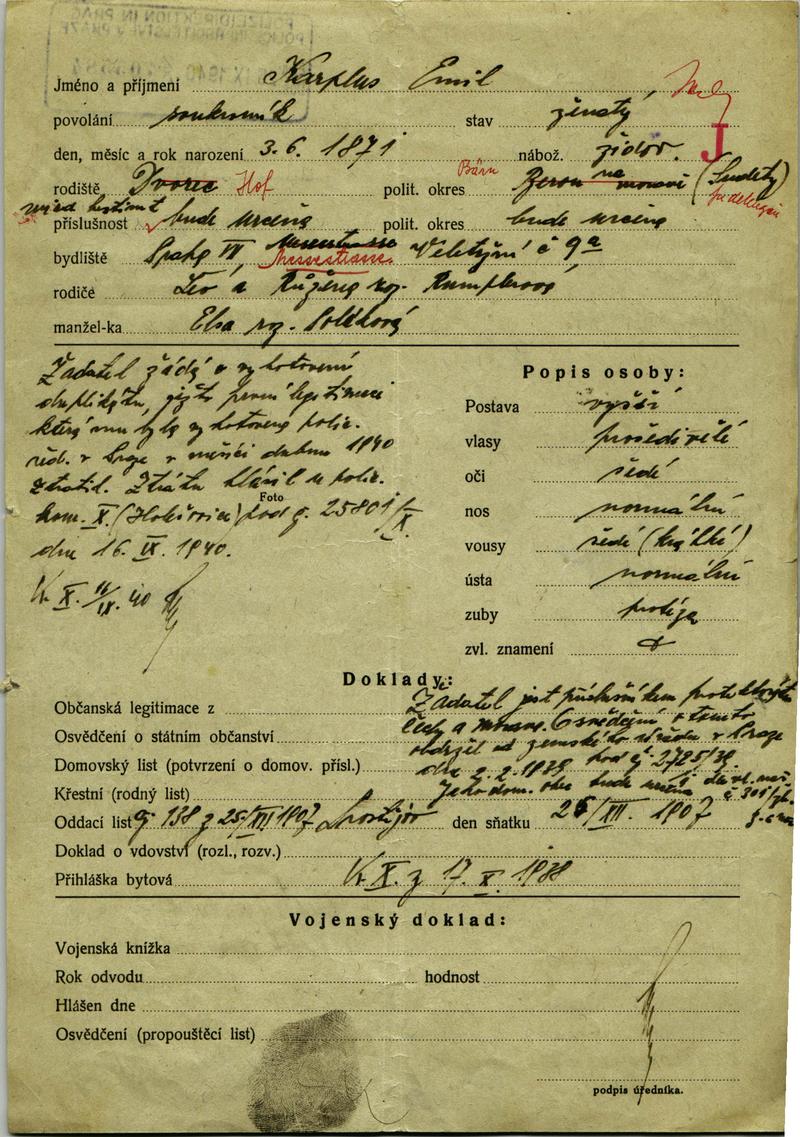 POLIZEIDIREKTION IN PRAG
Jméno a příjmení Karplus Emil
povolání soukromník stav ženatý
den, měsíc a rok narození 3. 6. 1871 nábož. židov. J
rodiště Dvorce Hof polit. okres Bärn Beroun na moravě (Sudety)
příslušnost bude určena polit. okres bude určena
bydliště Praha VII, Veletržní č 9a
rodiče Leo a Růžena roz.
manžel-ka Elsa roz.
Žadatel žádá o vyhotovení
duplikátu, ježto první legitimaci
která mu byla vyhotovena polic.
řed. v Praze v měsíci dubnu 1940
ztratil. Ztrátu hlásil u polic.
Foto
kom. X. (Holešovice) pod č. 25801/X.
dne 16. IX. 1940.
X. 16/IX. 40
Popis osoby:
Postava vyšší
vlasy prošedivělé
oči šedé
nos normální
vousy šedé (krátké)
ústa normální
zuby protéza
zvl. znamení
Doklady:
Občanská legitimace z
Osvědčení o státním občanství
Domovský list (potvrzení o domov. přísl.)
Křestní (rodný list)
Žadatel jest příslušníkem protektorátu
Čechy a Morava. Osvědčení o tomto
obdržel od zemského úřadu v Praze
dne 2. 2. 1939 pod č 2725/39.
Jeho dom. obec bude určena
Oddací list č. 138 z 25/XII 1907 Prostějov den sňatku 25/XII. 1907
Doklad o vdovství (rozl., rozv.)
Přihláška bytová X. z 17. X. 1938
Vojenský doklad:
Vojenská knížka
Rok odvodu hodnost
Hlášen dne
Osvědčení (propouštěcí list)
podpis úředníka.